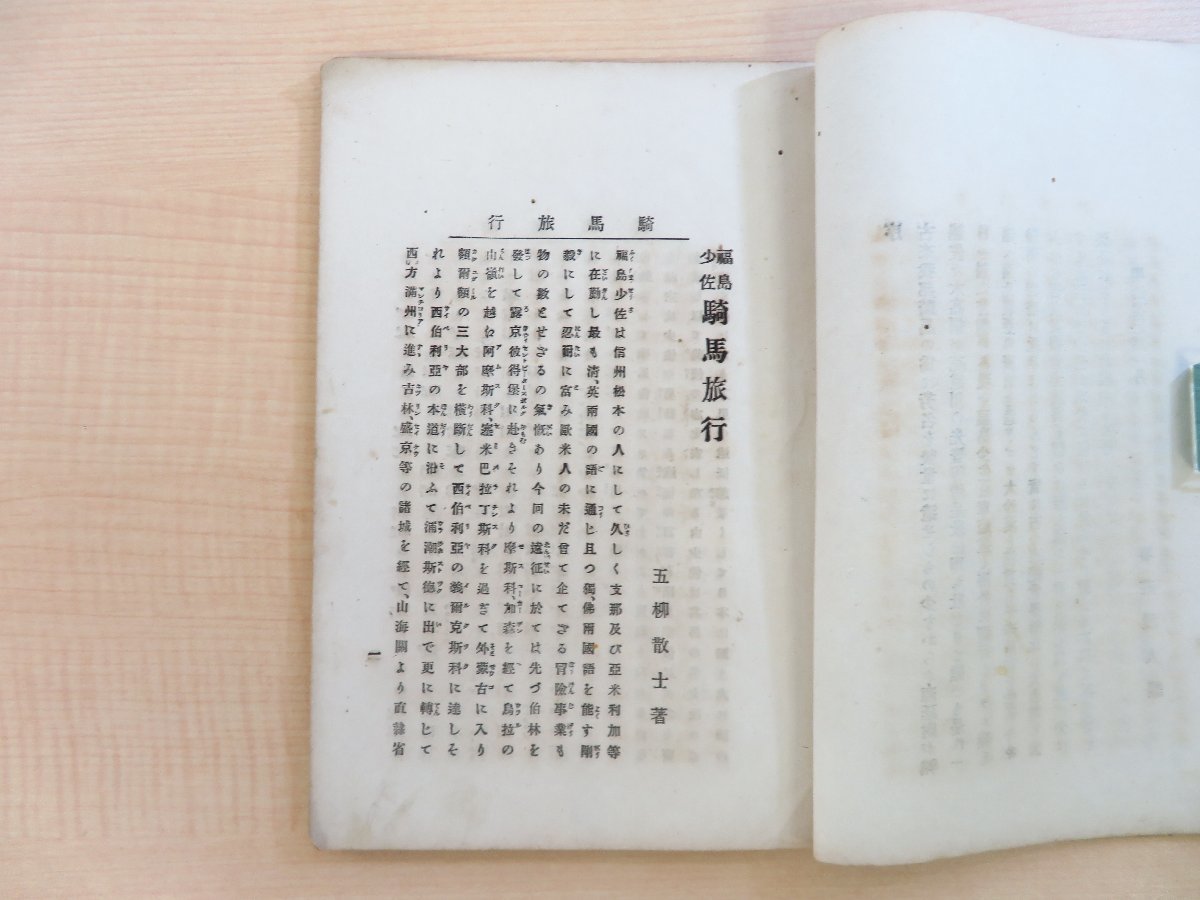 行旅馬騎
福島少佐 騎馬旅行
五柳散士著
福島少佐は信州松本の人にして久しく支那及び亞米利加等
に在勤し最も清、英兩國の語に通じ且つ獨、佛兩國語を能す剛
毅にして忍耐に富み歐米人の未だ曾て企てざる冒險事業も
物の數とせざるの氣慨あり今回の遠征に於ては先づ伯林を
發して露京彼得堡に赴きそれより摩斯科、加森を經て烏拉の
山嶺を越ね阿摩斯科、塞米巴拉丁斯科を過ぎて外蒙古に入り
額爾額の三大部を橫斷して西伯利亞の義爾克斯科に達しそ
れより西伯利亞の本道に沿ふて浦潮斯德に出で更に轉じて
西方滿州に進み吉林、盛京等の諸城を經て、山海關より直隷省
一